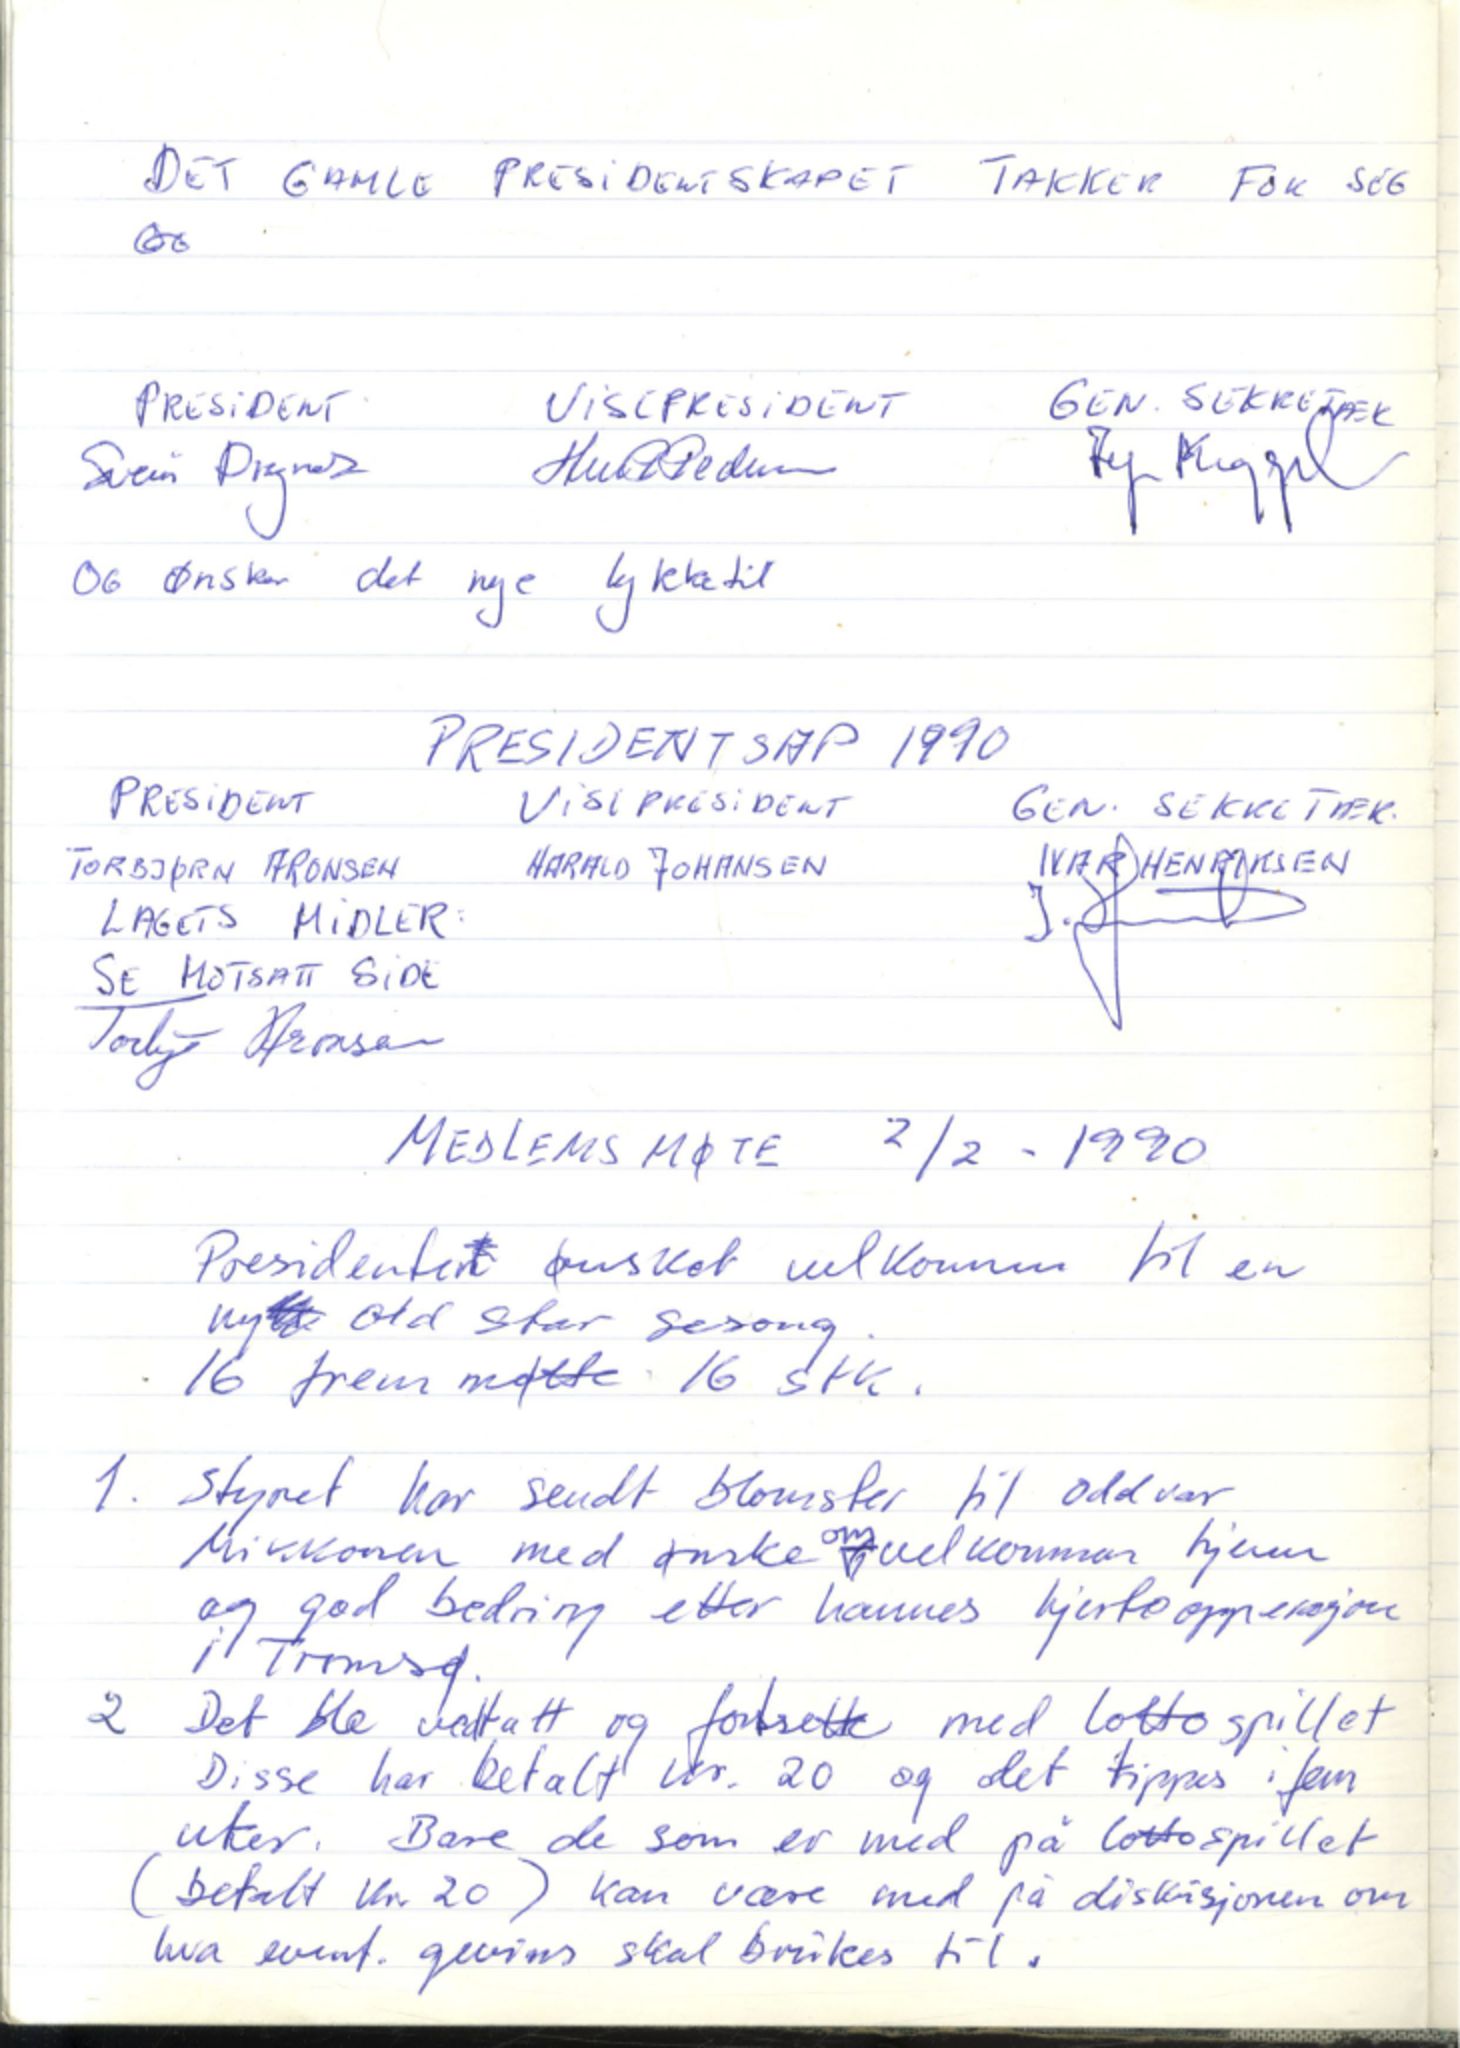 DET GAMLE PRESIDENTSKAPET TAKKER FOR SEG
OG
PRESIDENT VISEPRESIDENT GEN. SEKRETÆR
Svein
OG ønsker det nye lykke til
PRESIDENTSAP 1990
PRESIDENT VISEPRESIDENT GEN. SEKRETÆR.
TORBJØRN ARONSEN HARALD JOHANSEN IVAR HENRIKSEN
LAGETS MIDLER:
SE MOTSATT SIDE
Aronsen
MEDLEMSMØTE 2/2 - 1990
Presidenten ønsket velkommen til en
ny old star sesong.
16 frem møtte 16 stk.
1. Styret har sendt blomster til Oddvar
Mikkonen med ønske om velkommen hjem
og god bedring etter hannes hjerteopperasjon
i Tromsø.
2 Det ble vedtatt og fortsette med lottospillet
Disse har betalt kr. 20 og det tippes i fem
uker. Bare de som er med på lottospillet
(betalt kr. 20) kan være med på diskusjonen om
hva event. gevins skal brukes til.